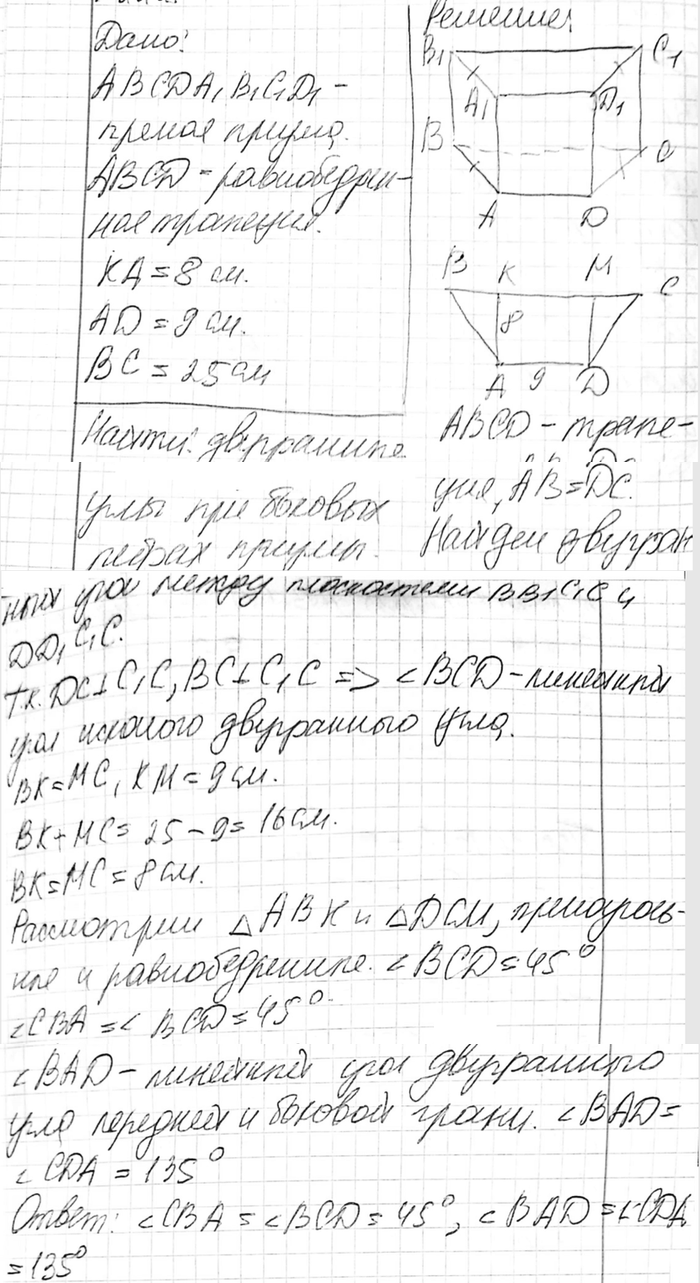 Дано:
ABCDA₁B₁C₁D₁ –
прямая призма.
ABCD – равнобедрен-
ная трапеция.
KA = 8 см.
AD = 9 см.
BC = 25 см
Найти: двугранные
углы при боковых
ребрах призмы.
Решение:
B₁ C₁
A₁ D₁
B C
A D
B K M C
8
A 9 D
ABCD – трапе-
ция, AB = DC.
Найдем двугран
ный угол между плоскостями BB₁C₁C и
DD₁C₁C.
Т.к. DC⊥C₁C, BC⊥C₁C => ∠BCD – линейный
угол искомого двугранного угла.
BK = MC, KM = 9 см.
BK + MC = 25 – 9 = 16 см.
BK = MC = 8 см.
Рассмотрим △ABK и △DCM, прямоуголь-
ные и равнобедренные. ∠BCD = 45°
∠CBA = ∠BCD = 45°
∠BAD – линейный угол двугранного
угла передней и боковой грани. ∠BAD =
∠CDA = 135°
Ответ: ∠CBA = ∠BCD = 45°, ∠BAD = ∠CDA
= 135°